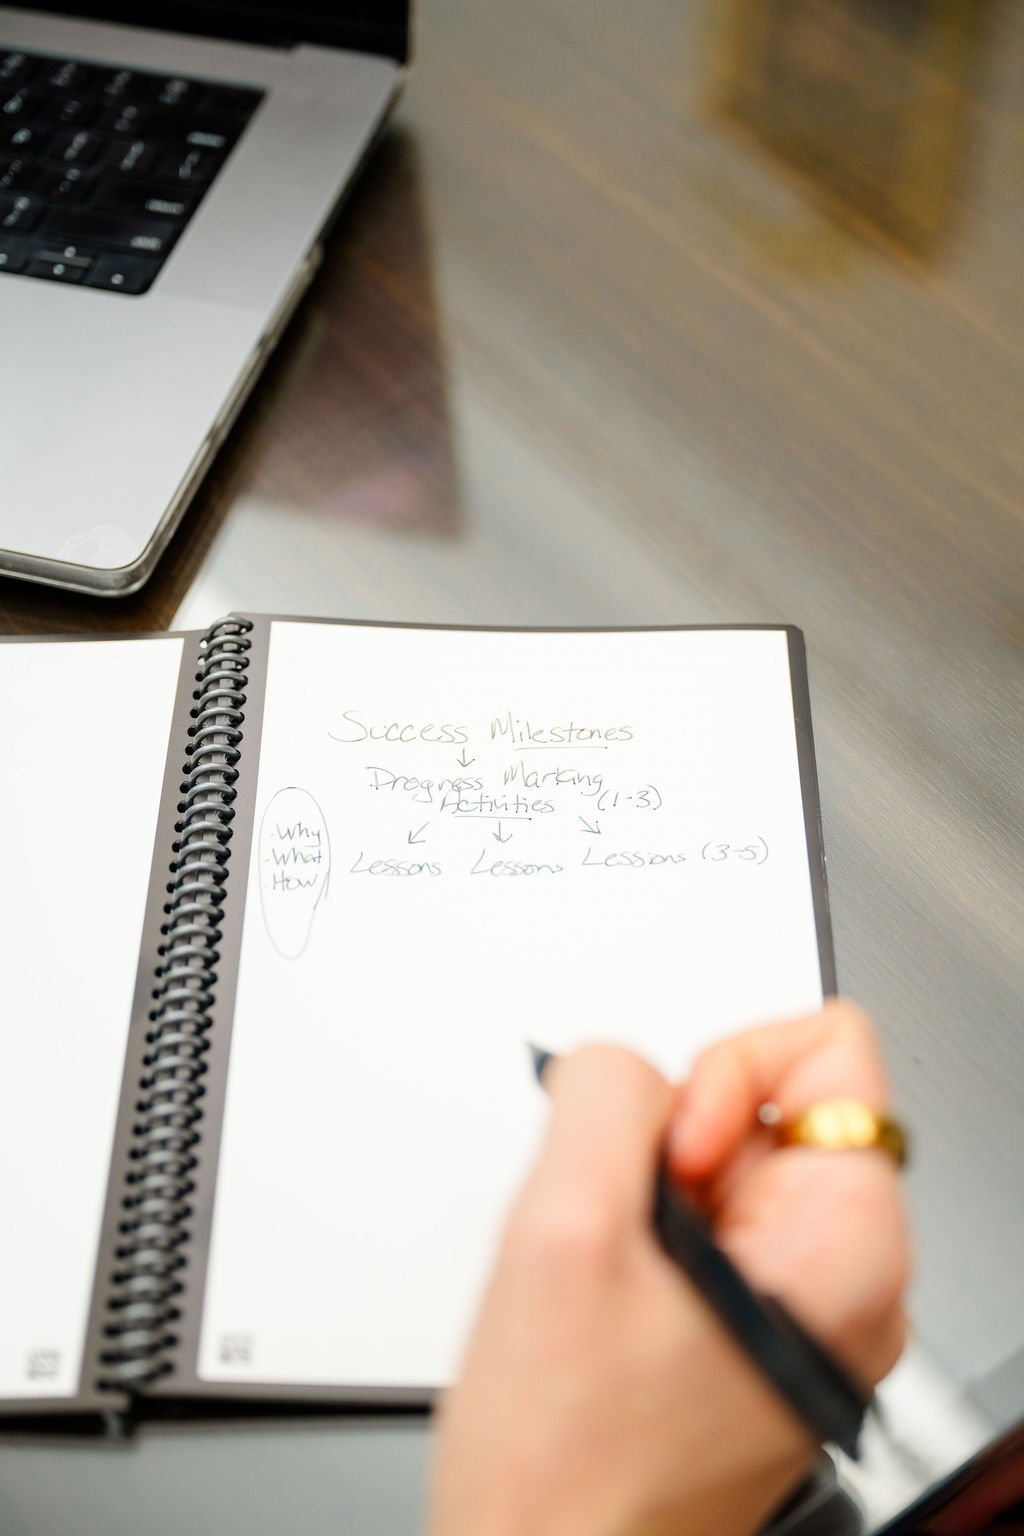 Success Milestones
Progress Marking
Activities (1-3)
· Why
· What
· How
Lessons Lessons Lessons (3-5)